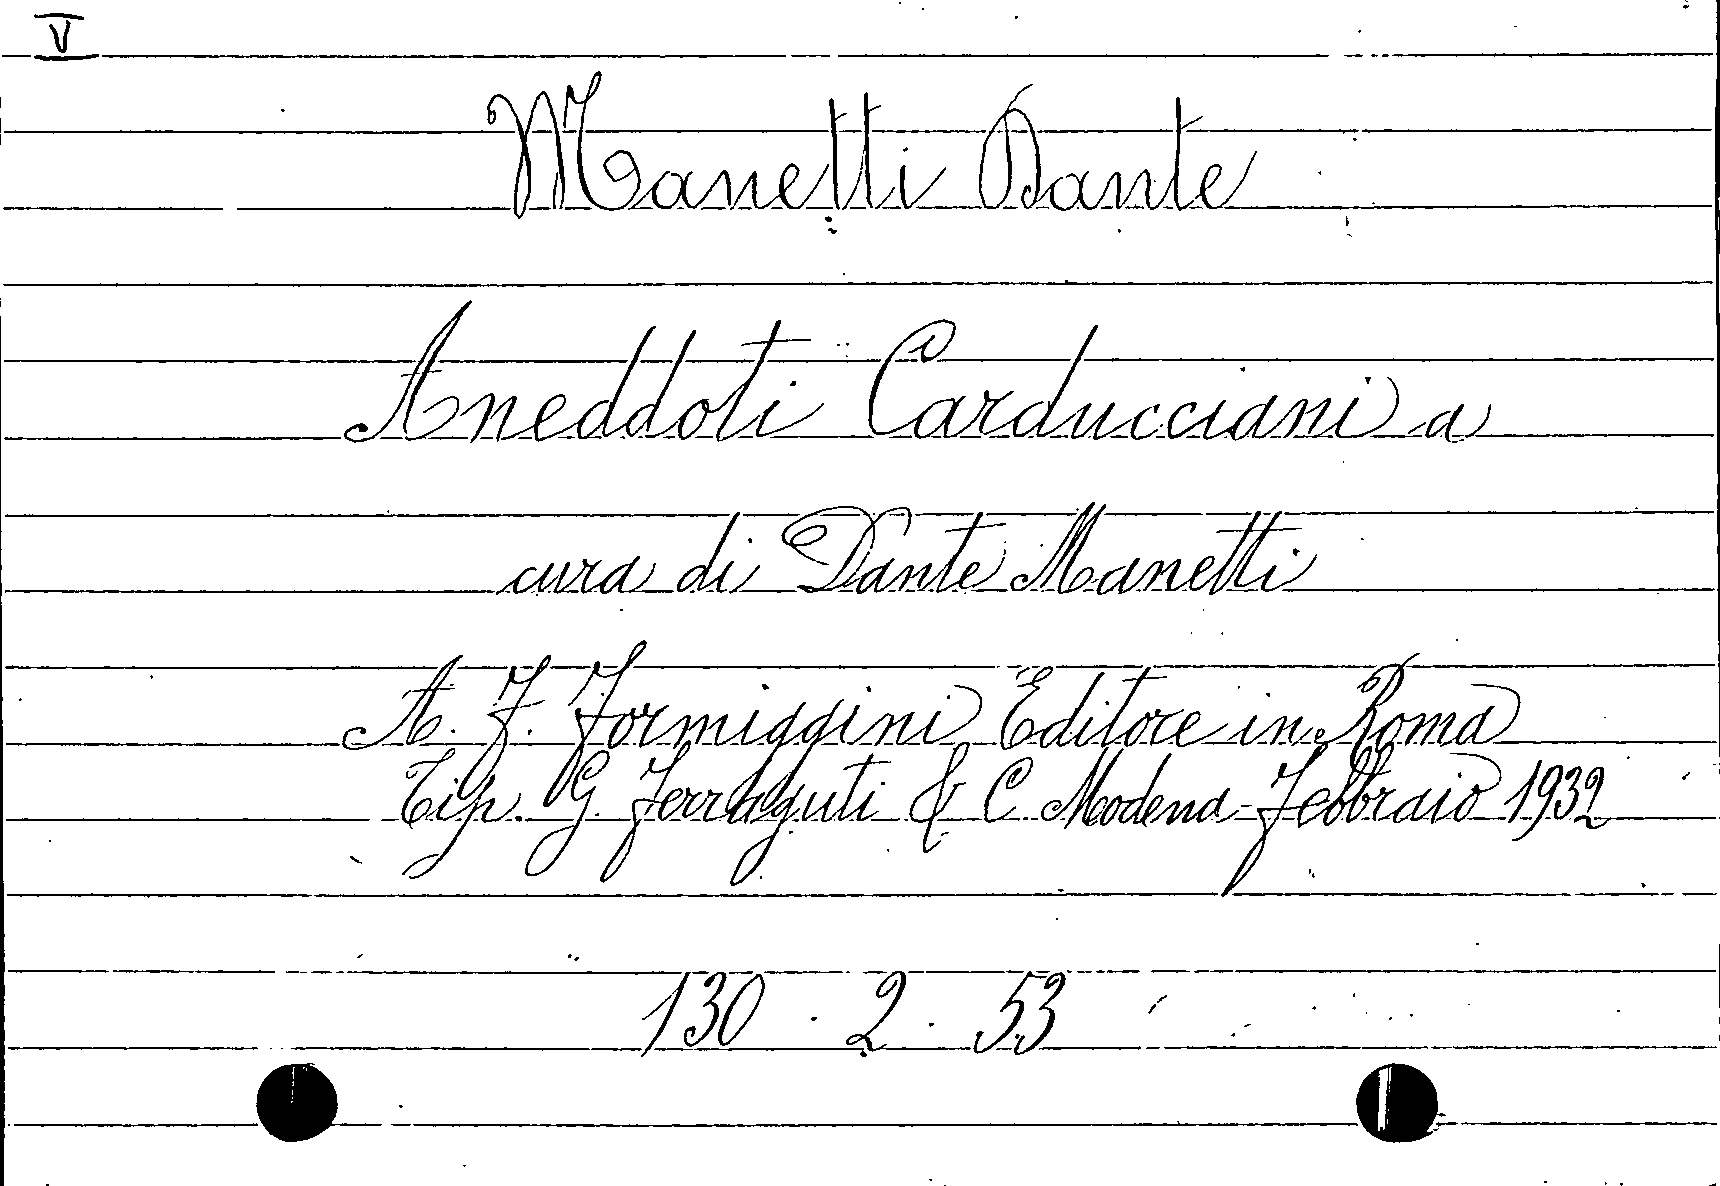 V
Manetti Dante
Aneddoti Carducciani a
cura di Dante Manetti
A. F. Formiggini Editore in Roma
Tip. G. Ferraguti & C. Modena - Febbraio 1932
130 . 2 . 53